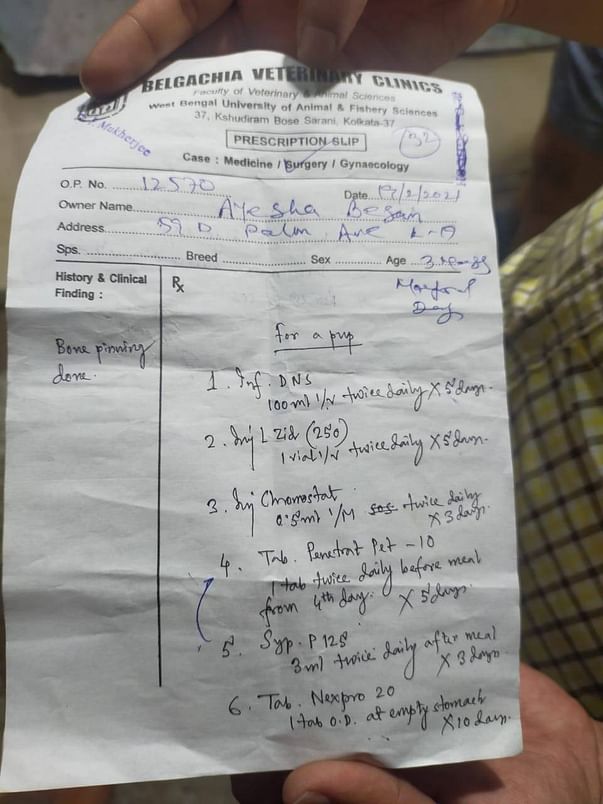 BELGACHIA VETERINARY CLINICS
Faculty of Veterinary & Animal Sciences
West Bengal University of Animal & Fishery Sciences
37, Kshudiram Bose Sarani, Kolkata-37
Mukherjee
PRESCRIPTION SLIP
32
Case : Medicine / Surgery / Gynaecology
O.P. No. 12570 Date 17/2/2021
Owner Name Ayesha Begam
Address 59 D Palm Ave K-19
Sps. Breed Sex Age 3
History & Clinical
Finding :
Rx
Dog
for a pup
Bone pinning
done.
1. Inf. DNS
100ml i/v twice daily X 5 days.
2. Inj L Zid (250)
1 vial i/v twice daily X 5 days.
3. Inj Chromostat
0.5ml i/M sos twice daily
X 3 days.
4. Tab. Penetrat Pet - 10
1 tab twice daily before meal
from 4th day. X 5 days.
5. Syp. P 125
3ml twice daily after meal
X 3 days
6. Tab. Nexpro 20
1 tab O.D. at empty stomach
X 10 days.